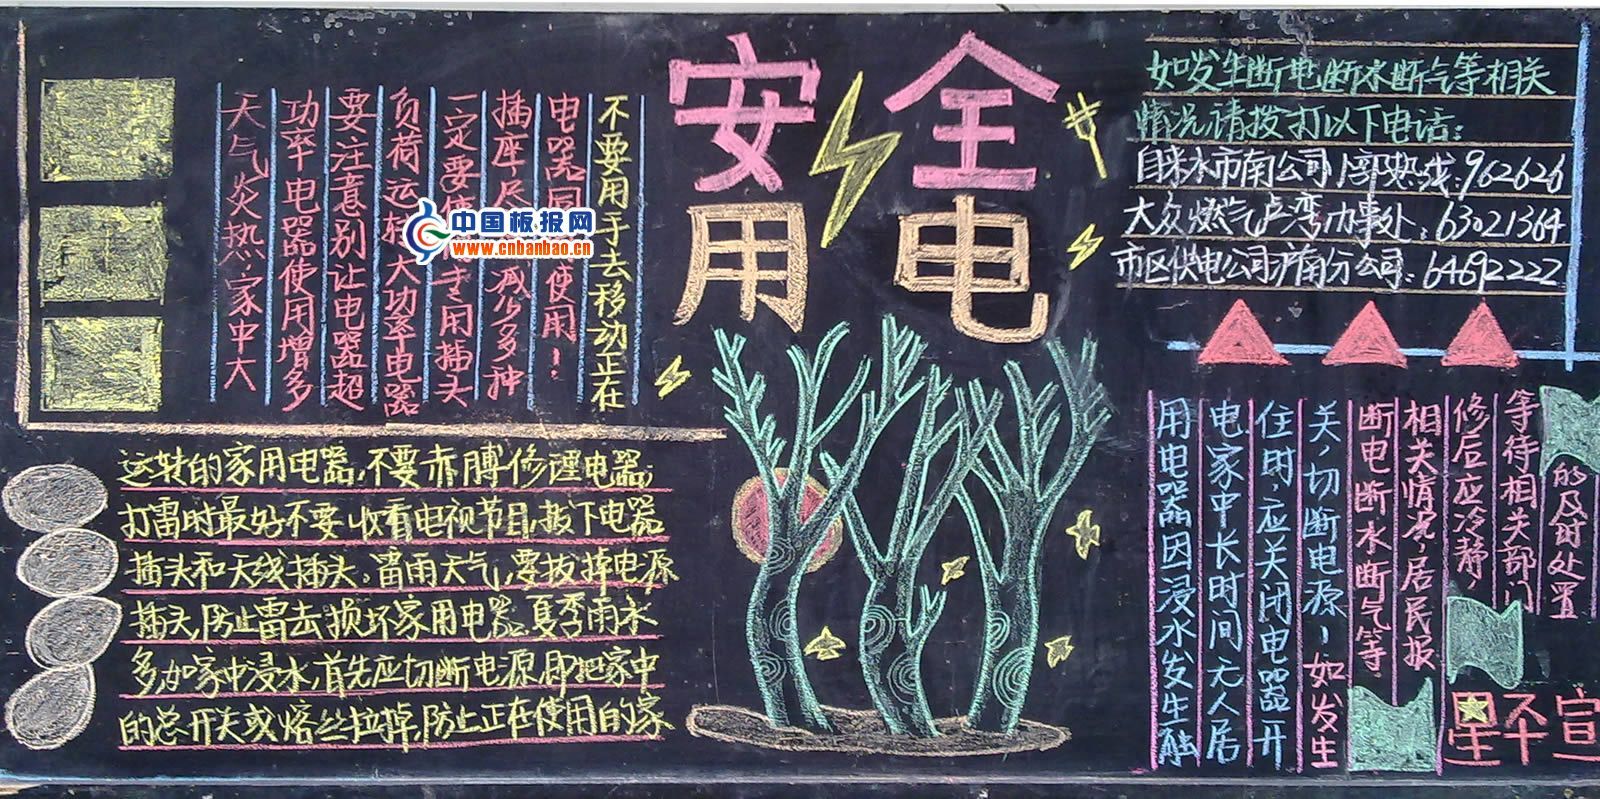 安全
用电
不要用手去移动正在
电器同使用!
插座尽减少多种
一定要使专用插头
负荷运转大功率电器
要注意别让电器超
功率电器使用增多
天气炎热,家中大
中国板报网
www.cnbanbao.cn
运转的家用电器,不要赤膊修理电器,
打雷时最好不要收看电视节目,拔下电器
插头和天线插头。雷雨天气,要拔掉电源
插头,防止雷击损坏家用电器。夏季雨水
多,如家中浸水,首先应切断电源,即把家中
的总开关或熔丝拉掉,防止正在使用的家
如发生断电断水断气等相关
情况请拨打以下电话:
自来水市南公司 热线:962626
大众燃气卢湾办事处:63021364
市区供电公司沪南分公司:64692222
的及时处置
等待相关部门
修后应冷静
相关情况,居民报
断电断水断气等
关,切断电源!如发生
住时,应关闭电器开
电家中长时间无人居
用电器因浸水发生触
星不宣